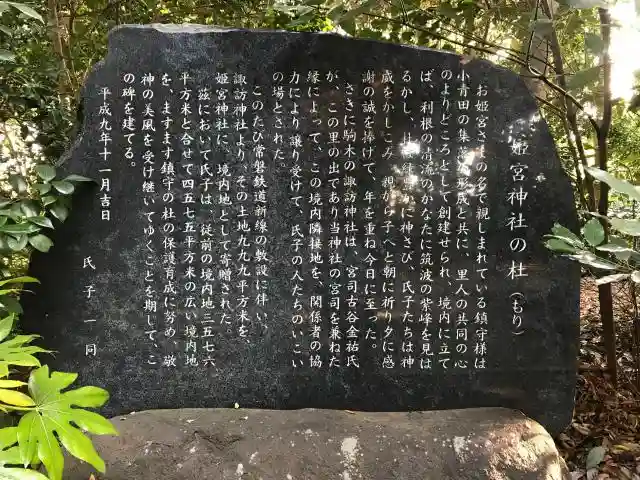 姫宮神社の杜（もり）
お姫宮さまの名で親しまれている鎮守様は
小青田の集落の形成と共に、里人の共同の心
のよりどころとして創建せられ、境内に立て
ば、利根の清流のかなたに筑波の紫峰を見は
るかし、杜は静かに神さび、氏子たちは神
威をかしこみ、親から子へと朝に祈り夕に感
謝の誠を捧げて、年を重ね今日に至った。
さきに駒木の諏訪神社は、宮司古谷金祐氏
が、この里の出であり当神社の宮司を兼ねた
縁によって、この境内隣接地を、関係者の協
力により譲り受けて、氏子の人たちのいこい
の場とされた。
このたび常磐鉄道新線の敷設に伴い、
諏訪神社より、その土地九九九平方米を、
姫宮神社に、境内地として寄贈された。
茲において氏子は、従前の境内地三五七六
平方米と合せて四五七五平方米の広い境内地
を、ますます鎮守の杜の保護育成に努め、敬
神の美風を受け継いてゆくことを期して、こ
の碑を建てる。
平成九年十一月吉日
氏子一同